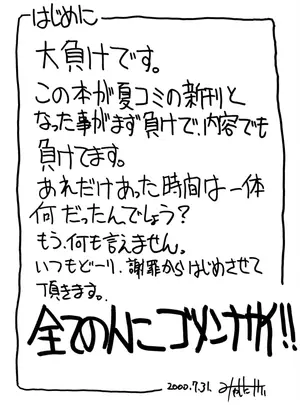 はじめに
大負けです。
この本が夏コミの新刊と
なった事がまず負けで、内容でも
負けてます。
あれだけあった時間は一体
何だったんでしょう？
もう、何も言えません。
いつもどーり、謝罪からはじめさせて
頂きます。
全てのんにゴメンナサイ!!
2000.7.31